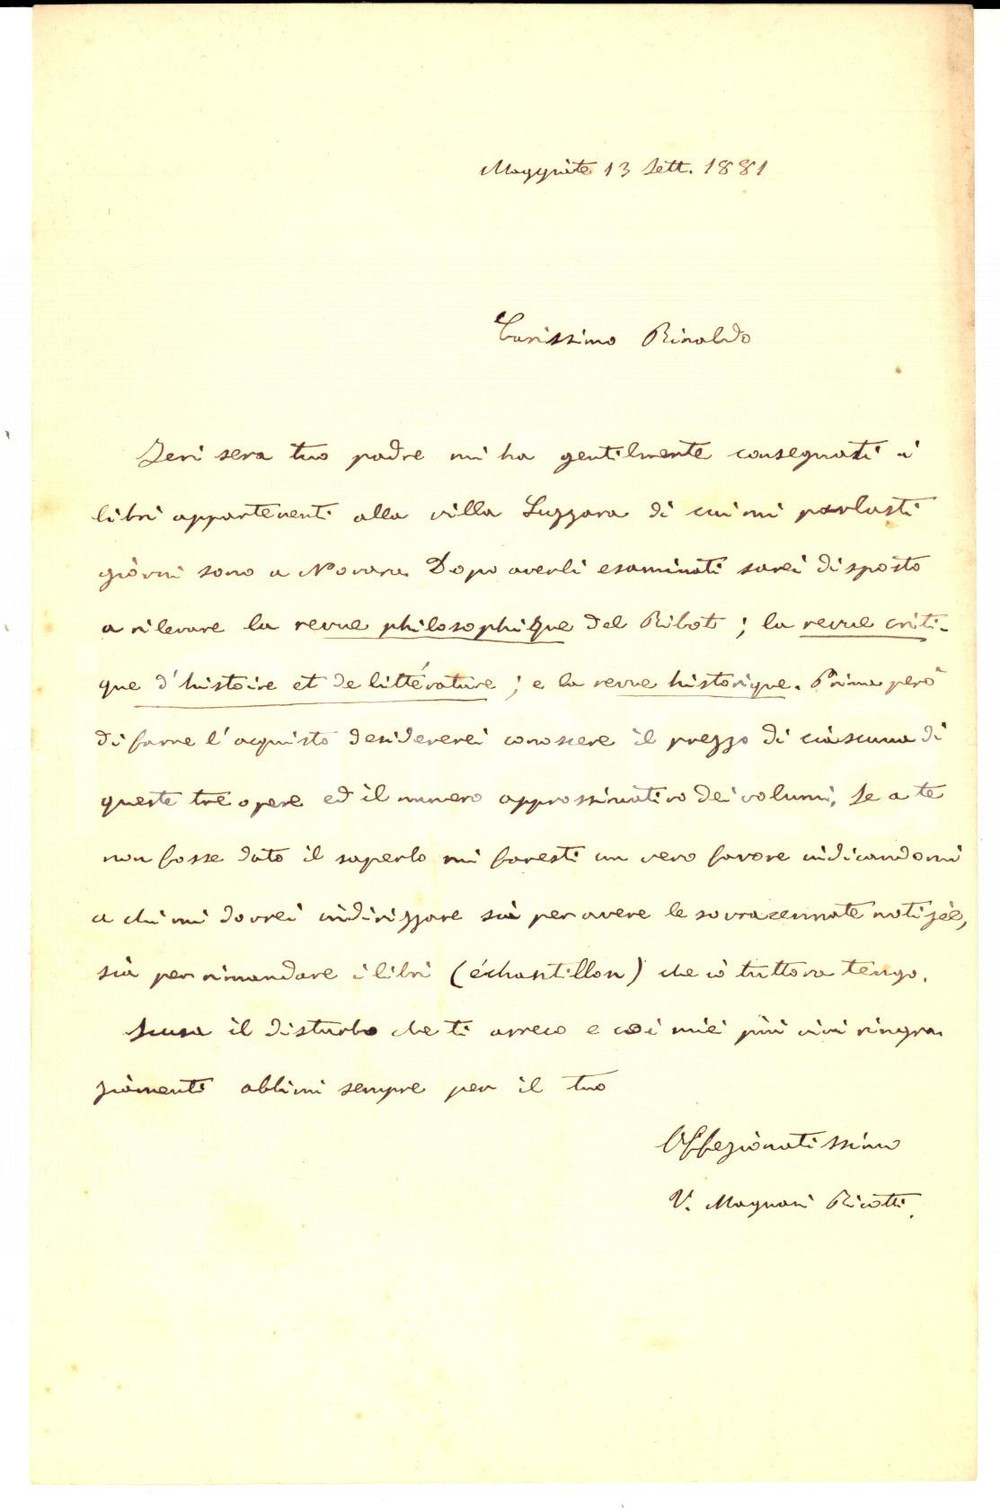 Maggiate 13 Sett. 1881
Carissimo Rinaldo
Ieri sera tuo padre mi ha gentilmente consegnati i
libri appartenenti alla villa Luzzara di cui mi parlasti
giorni sono a Novara. Dopo averli esaminati sarei disposto
a rilevare la revue philosophique del Ribot; la revue criti-
que d'histoire et de littérature; e la revue historique. Prima però
di farne l'acquisto desidererei conoscere il prezzo di ciascuna di
queste tre opere ed il numero approssimativo dei volumi. Se a te
non fosse dato il saperlo mi faresti un vero favore indicandomi
a chi mi dovrei indirizzare sia per avere le sovracennate notizie,
sia per rimandare i libri (échantillon) che io tuttora tengo.
Scusa il disturbo che ti arreco e coi miei più vivi ringra-
ziamenti abbimi sempre per il tuo
Affezionatissimo
V. Magnani Ricotti.